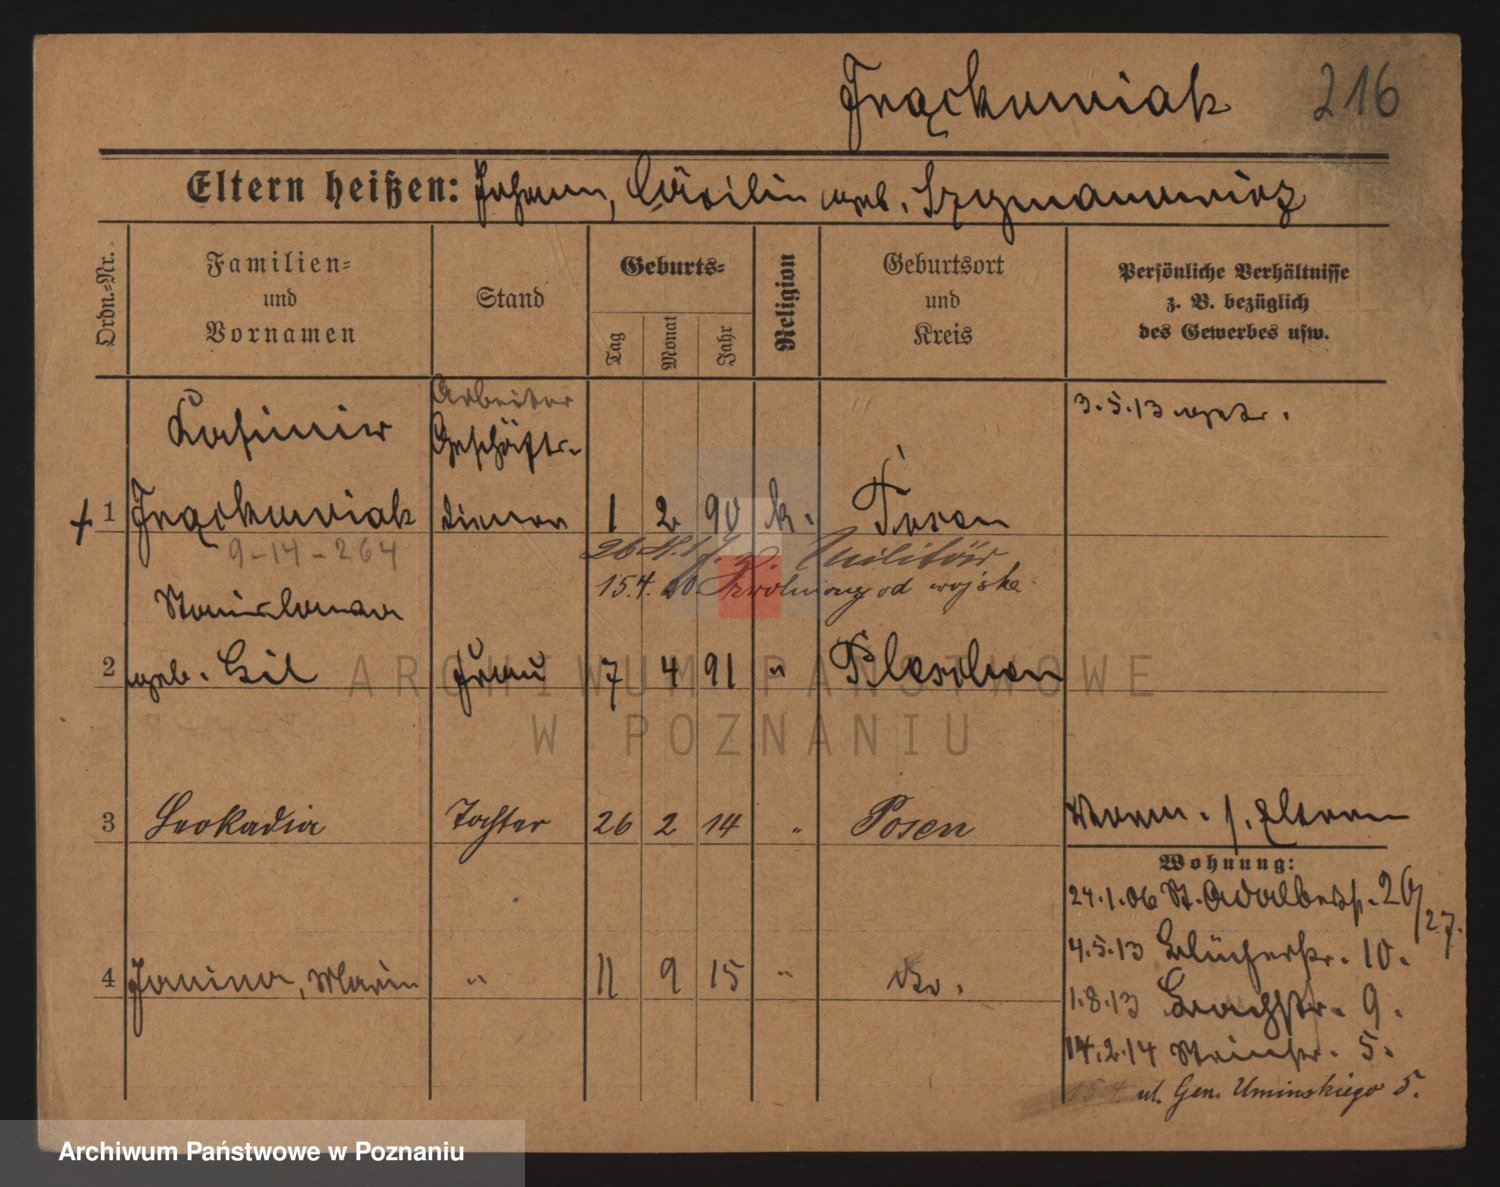 Frąckowiak 216
Eltern heißen: Johann, Cäcilia geb. Szymanowicz
Ordn.-Nr.
Familien-
und
Vornamen
Stand
Geburts-
Tag
Monat
Jahr
Religion
Geburtsort
und
Kreis
Persönliche Verhältnisse
z. B. bezüglich
des Gewerbes usw.
Arbeiter
Kasimir Geschäfts- 3.5.13 getr.
+ 1 Frąckowiak diener 1 2 90 k. Posen
9-14-264 26. z. Militär
15.4.20 Zwolniony od wojska
Stanislawa
2 geb. Gil Frau 7 4 91 " Pleschen
3 Leokadia Tochter 26 2 14 " Posen Verm. s. Eltern
Wohnung:
24.1.06 St. Adalbertstr. 26/27.
4 Janina, Maria " 11 9 15 " do. 4.5.13 Blücherstr. 10.
1.8.13 Bachstr. 9.
14.2.14 Steinstr. 5.
15.4. ul. Gen. Umińskiego 5.
ARCHIWUM PAŃSTWOWE
W POZNANIU
Archiwum Państwowe w Poznaniu